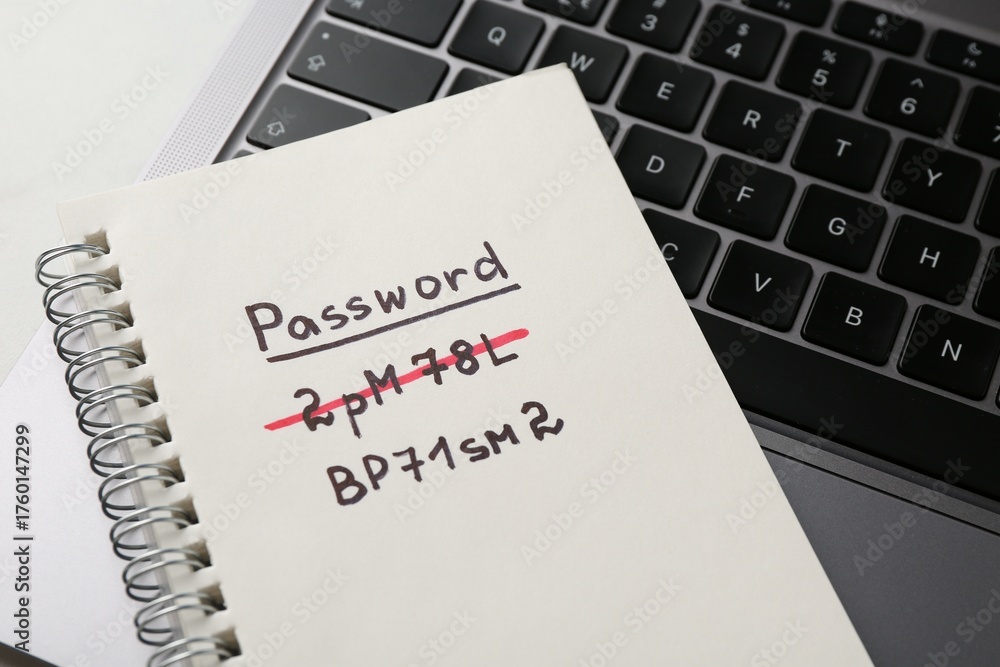 Password
2pM78L
BP71sM2
Q W E R T Y
3 4 5 6
% ^
D F G H
C V B N
Adobe Stock | #1760147299